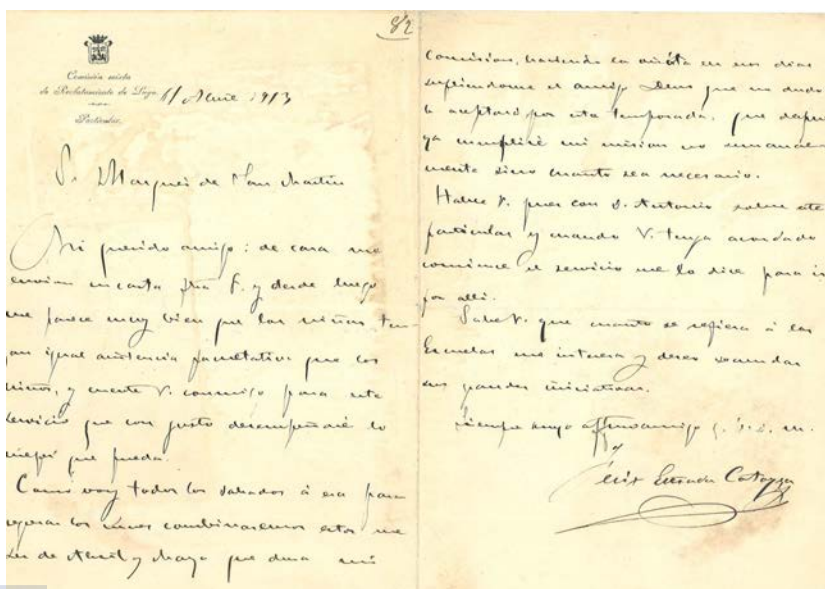 82
Comisión mixta
de Reclutamiento de Lugo
Particular.
11 Abril 1913
Sr. Marqués de San Martín
Mi querido amigo: de casa me
envian su carta fha 8. y desde luego
me parece muy bien que las niñas ten-
gan igual asistencia facultativa que los
niños, y cuente V. conmigo para este
servicio que con gusto desempeñaré lo
mejor que pueda.
Como voy todos los sabados á esa para
regresar los lunes combinaremos estos me
ses de Abril y Mayo que dura mi
comision, haciendo la visita en esos dias
supliendome el amigo Deus que no dudo
lo aceptará por esta temporada, que despues
ya cumpliré mi mision no semanal-
mente sino cuanto sea necesario.
Hable V. pues con D. Antonio sobre este
particular y cuando V. tenga acordado
comience el servicio me lo dice para ir
por allí.
Sabe V. que cuanto se refiera á las
Escuelas me interesa y deseo secundar
sus grandes iniciativas.
Siempre suyo affmo amigo q. b. s. m.
Félix Estrada Catoyra